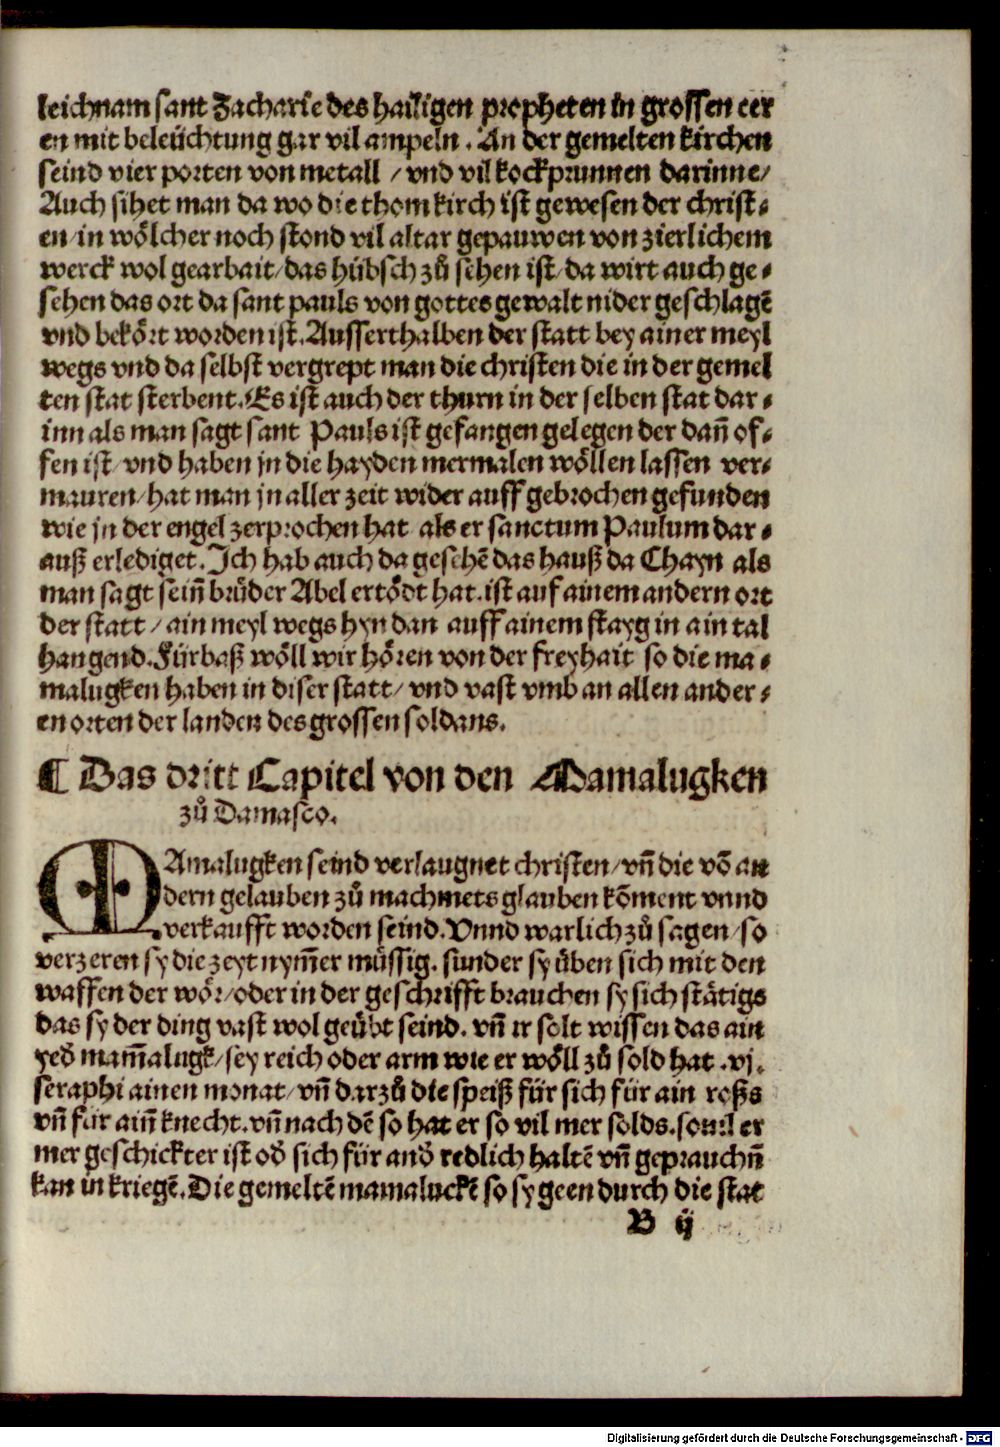 leichnam sant Zacharie des hailigen propheten in grossen eer
en mit beleüchtung gar vil ampeln. An der gemelten kirchen
seind vier porten von metall / vnd vil kockprunnen darinne/
Auch sihet man da wo die thomkirch ist gewesen der christ⸗
en/in wölcher noch stond vil altar gepauwen von zierlichem
werck wol gearbait/das hübsch zů sehen ist/da wirt auch ge⸗
sehen das ort da sant pauls von gottes gewalt nider geschlagē
vnd bekört worden ist. Ausserthalben der statt bey ainer meyl
wegs vnd da selbst vergrept man die christen die in der gemel
ten stat sterbent. Es ist auch der thurn in der selben stat dar⸗
inn als man sagt sant Pauls ist gefangen gelegen der dañ of⸗
fen ist/vnd haben jn die hayden mermalen wöllen lassen ver⸗
mauren/hat man jn aller zeit wider auff gebrochen gefunden
wie jn der engel zerprochen hat als er sanctum Paulum dar⸗
auß erlediget. Ich hab auch da gesehē das hauß da Chayn als
man sagt seiñ brůder Abel ertödt hat. ist auf ainem andern ort
der statt / ain meyl wegs hyn dan auff ainem stayg in ain tal
hangend. Fürbaß wöll wir hören von der freyhait so die ma⸗
malugken haben in diser statt/ vnd vast vmb an allen ander⸗
en orten der landen des grossen soldans.
¶ Das dritt Capitel von den Mamalugken
zů Damasco.
MAmalugken seind verlaugnet christen/vñ die vō an
dern gelauben zů machmets glauben kōment vnnd
verkaufft worden seind. Vnnd warlich zů sagen/so
verzeren sy die zeyt nym̄er müssig. sunder sy üben sich mit den
waffen der wör/oder in der geschrifft brauchen sy sich stätigs
das sy der ding vast wol geübt seind. vñ ir solt wissen das ain
yed̄ mam̄alugk/sey reich oder arm wie er wöll zů sold hat .vj.
seraphi ainen monat/vñ darzů die speiß für sich für ain roßs
vñ für aiñ knecht. vñ nach dē so hat er so vil mer solds. souil er
mer geschickter ist od̄ sich für and̄ redlich haltē vñ geprauchñ
kan in kriegē. Die gemeltē mamaluckē so sy geen durch die stat
B ij
Digitalisierung gefördert durch die Deutsche Forschungsgemeinschaft - DFG